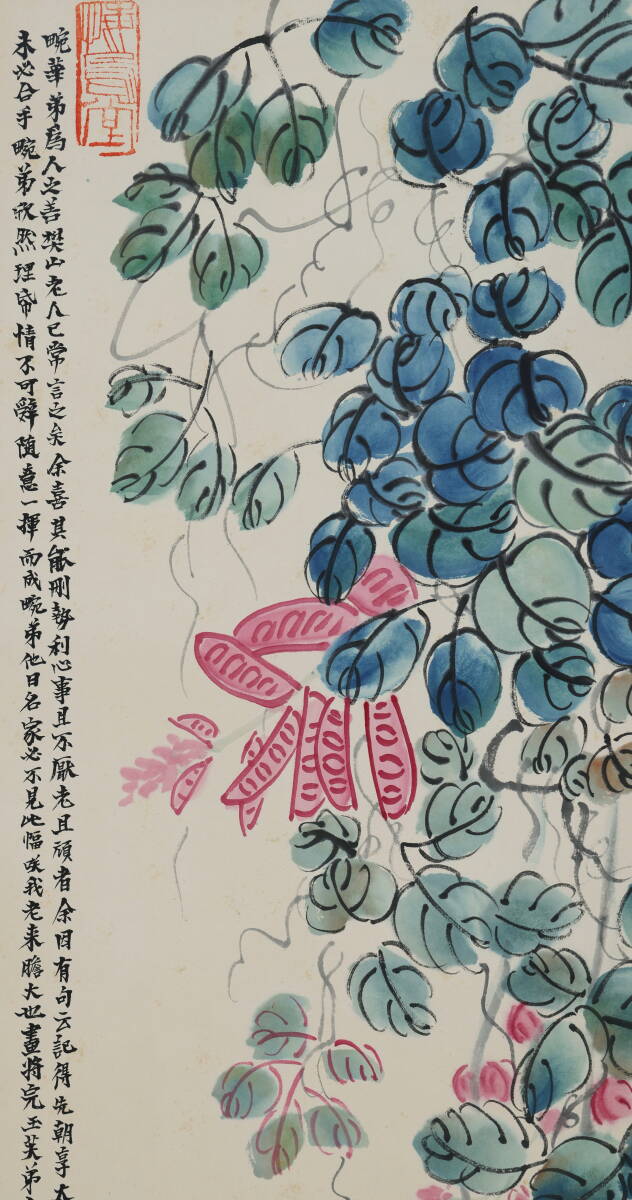 悔烏堂
畹華弟為人之善樊山老人已常言之矣余喜其無剛勢利心事且不厭老且頑者余因有句云記得先朝享太
未必合乎畹弟欣然理帋情不可辭隨意一揮而成畹弟他日名家必不見此幅咲我老來膽大也畫將完玉芙弟